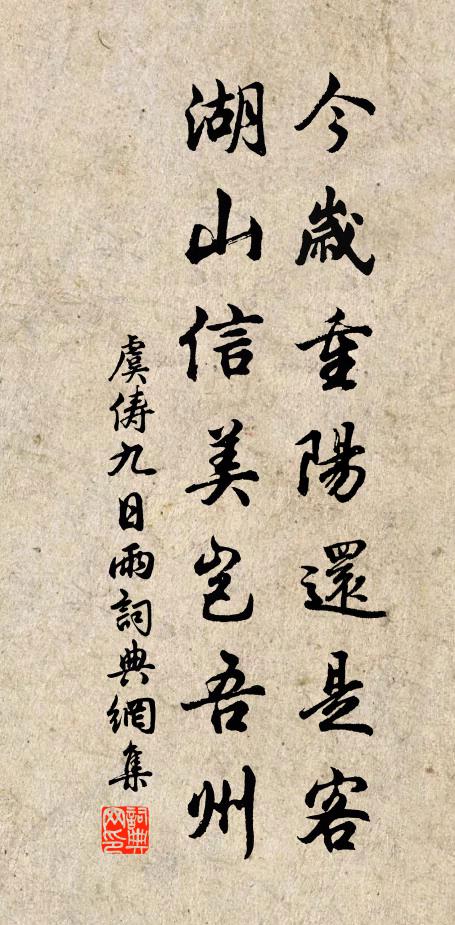 今歲重陽還是客
湖山信美豈吾州
虞儔九日雨詞典網集
詞典网印